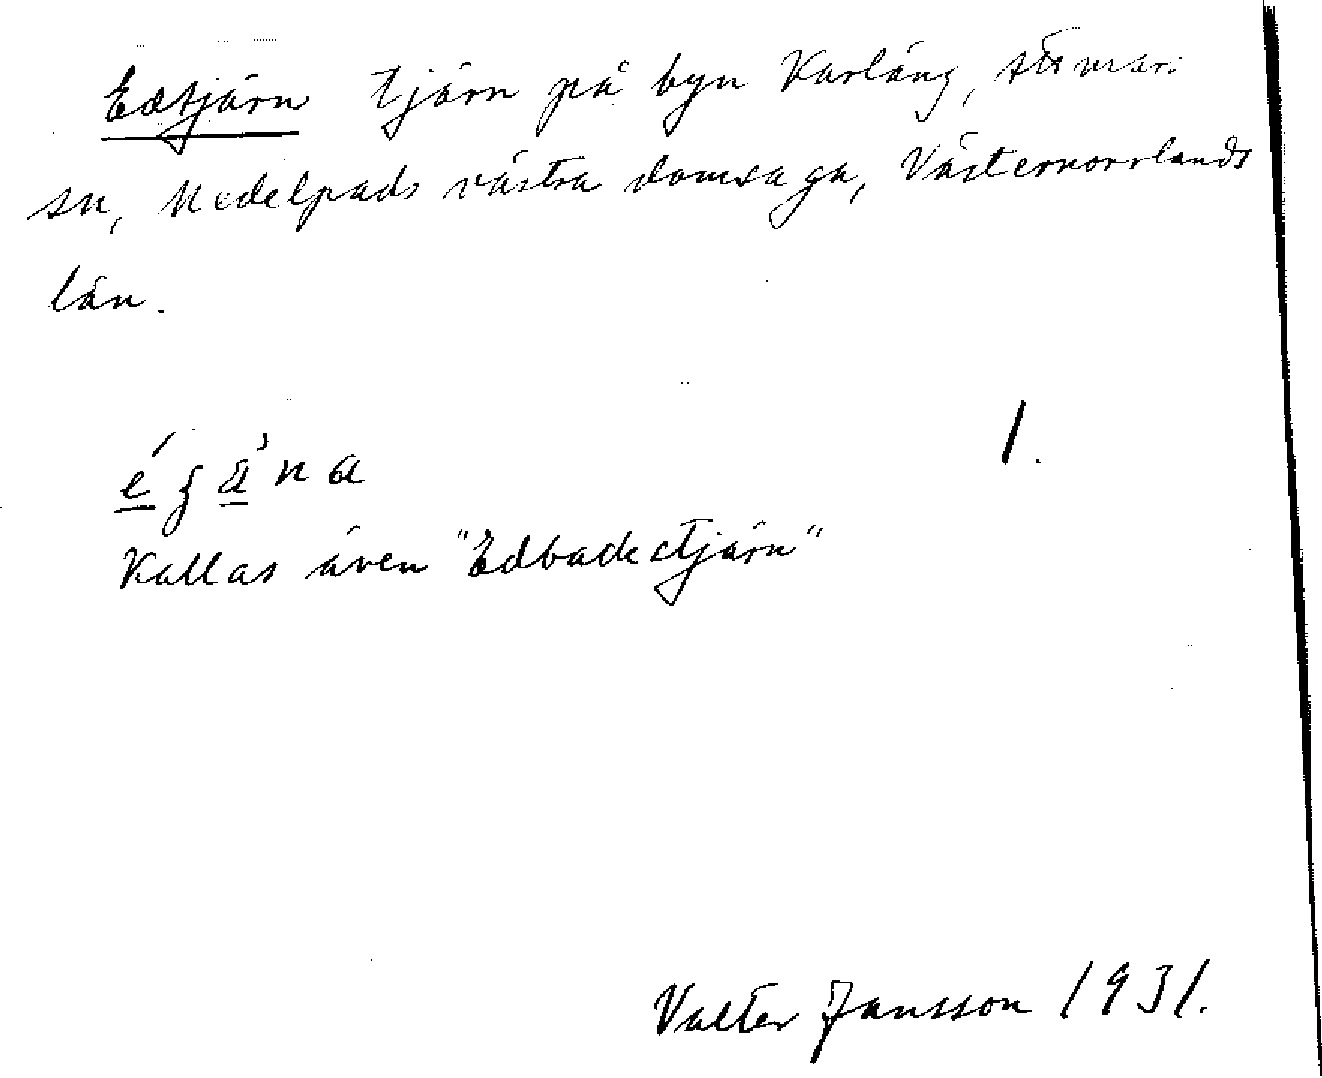 Edtjärn tjärn på byn Karläng, Attmar:
sn, Medelpads västra domsaga, Västernorrlands
län.
1.
Kallas även "Edbackstjärn"
Valter Jansson 1931.